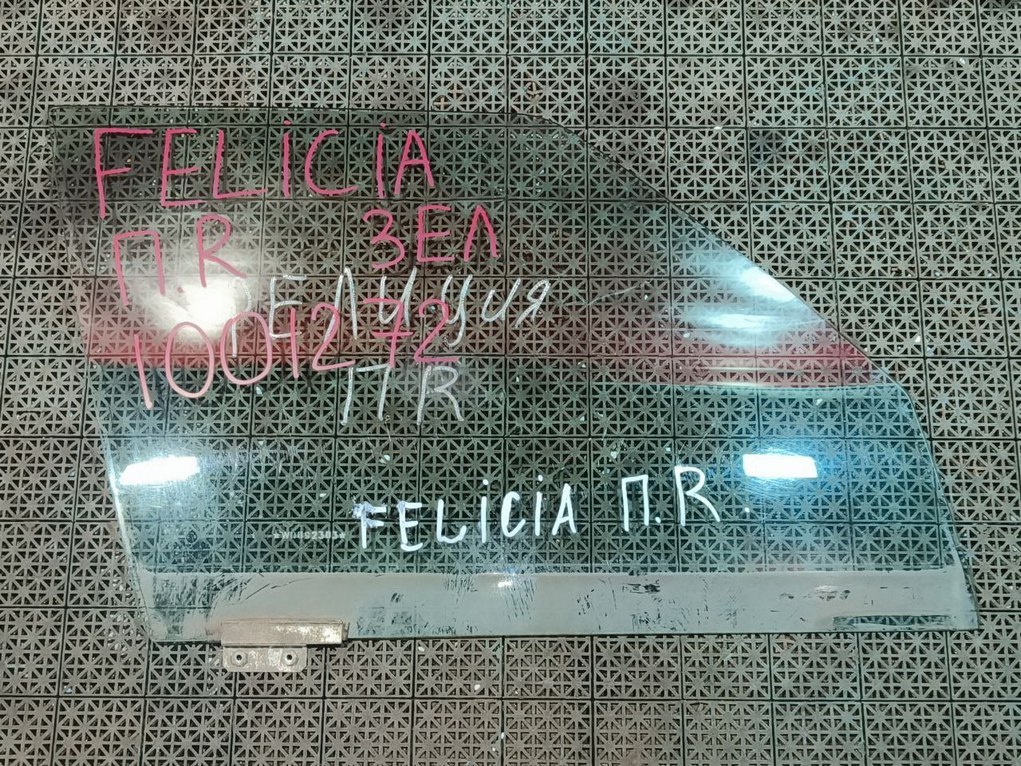 FELICIA
П.R ЗЕЛ
Фелиция
1004272
П R
FELICIA П.R.